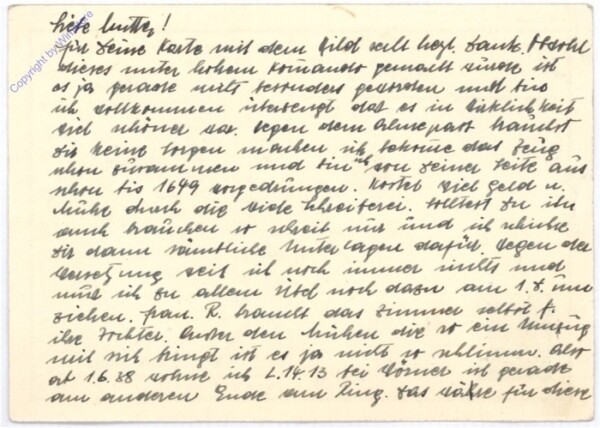 Liebe Mutter!
Für Deine Karte mit dem Bild sehr herzl. Dank. Obwohl
dieses unter hohem Komando gemalt wurde ist
es ja gerade nicht besonders geworden und bin
ich vollkommen überzeugt dat es in Wirklichkeit
viel schöner war. Wegen dem Ahnenpass brauchst
Dir keine Sorgen machen ich bekome das Zeug
schon zusammen und bin ich von Deiner Seite aus
schon bis 1649 vorgedrungen. Kostet viel Geld u.
Mühe durch die viele Schreiberei. Solltest Du ihn
auch brauchen so schreib nur und ich schicke
Dir dann sämtliche Unterlagen dafür. Wegen der
Versetzung weis ich noch immer nichts und
muss ich zu allem Übel noch dazu am 1.6. um
ziehen. Frau R. braucht das Zimmer selbst f.
ihre Tochter. Ausser den Mühen die so ein Umzug
mit sich bringt ist es ja nicht so schlimm. Also
ab 1.6.38 wohne ich L.14.13 bei Körner ist gerade
am anderen Ende am Ring. Das wäre für diese
Copyright by